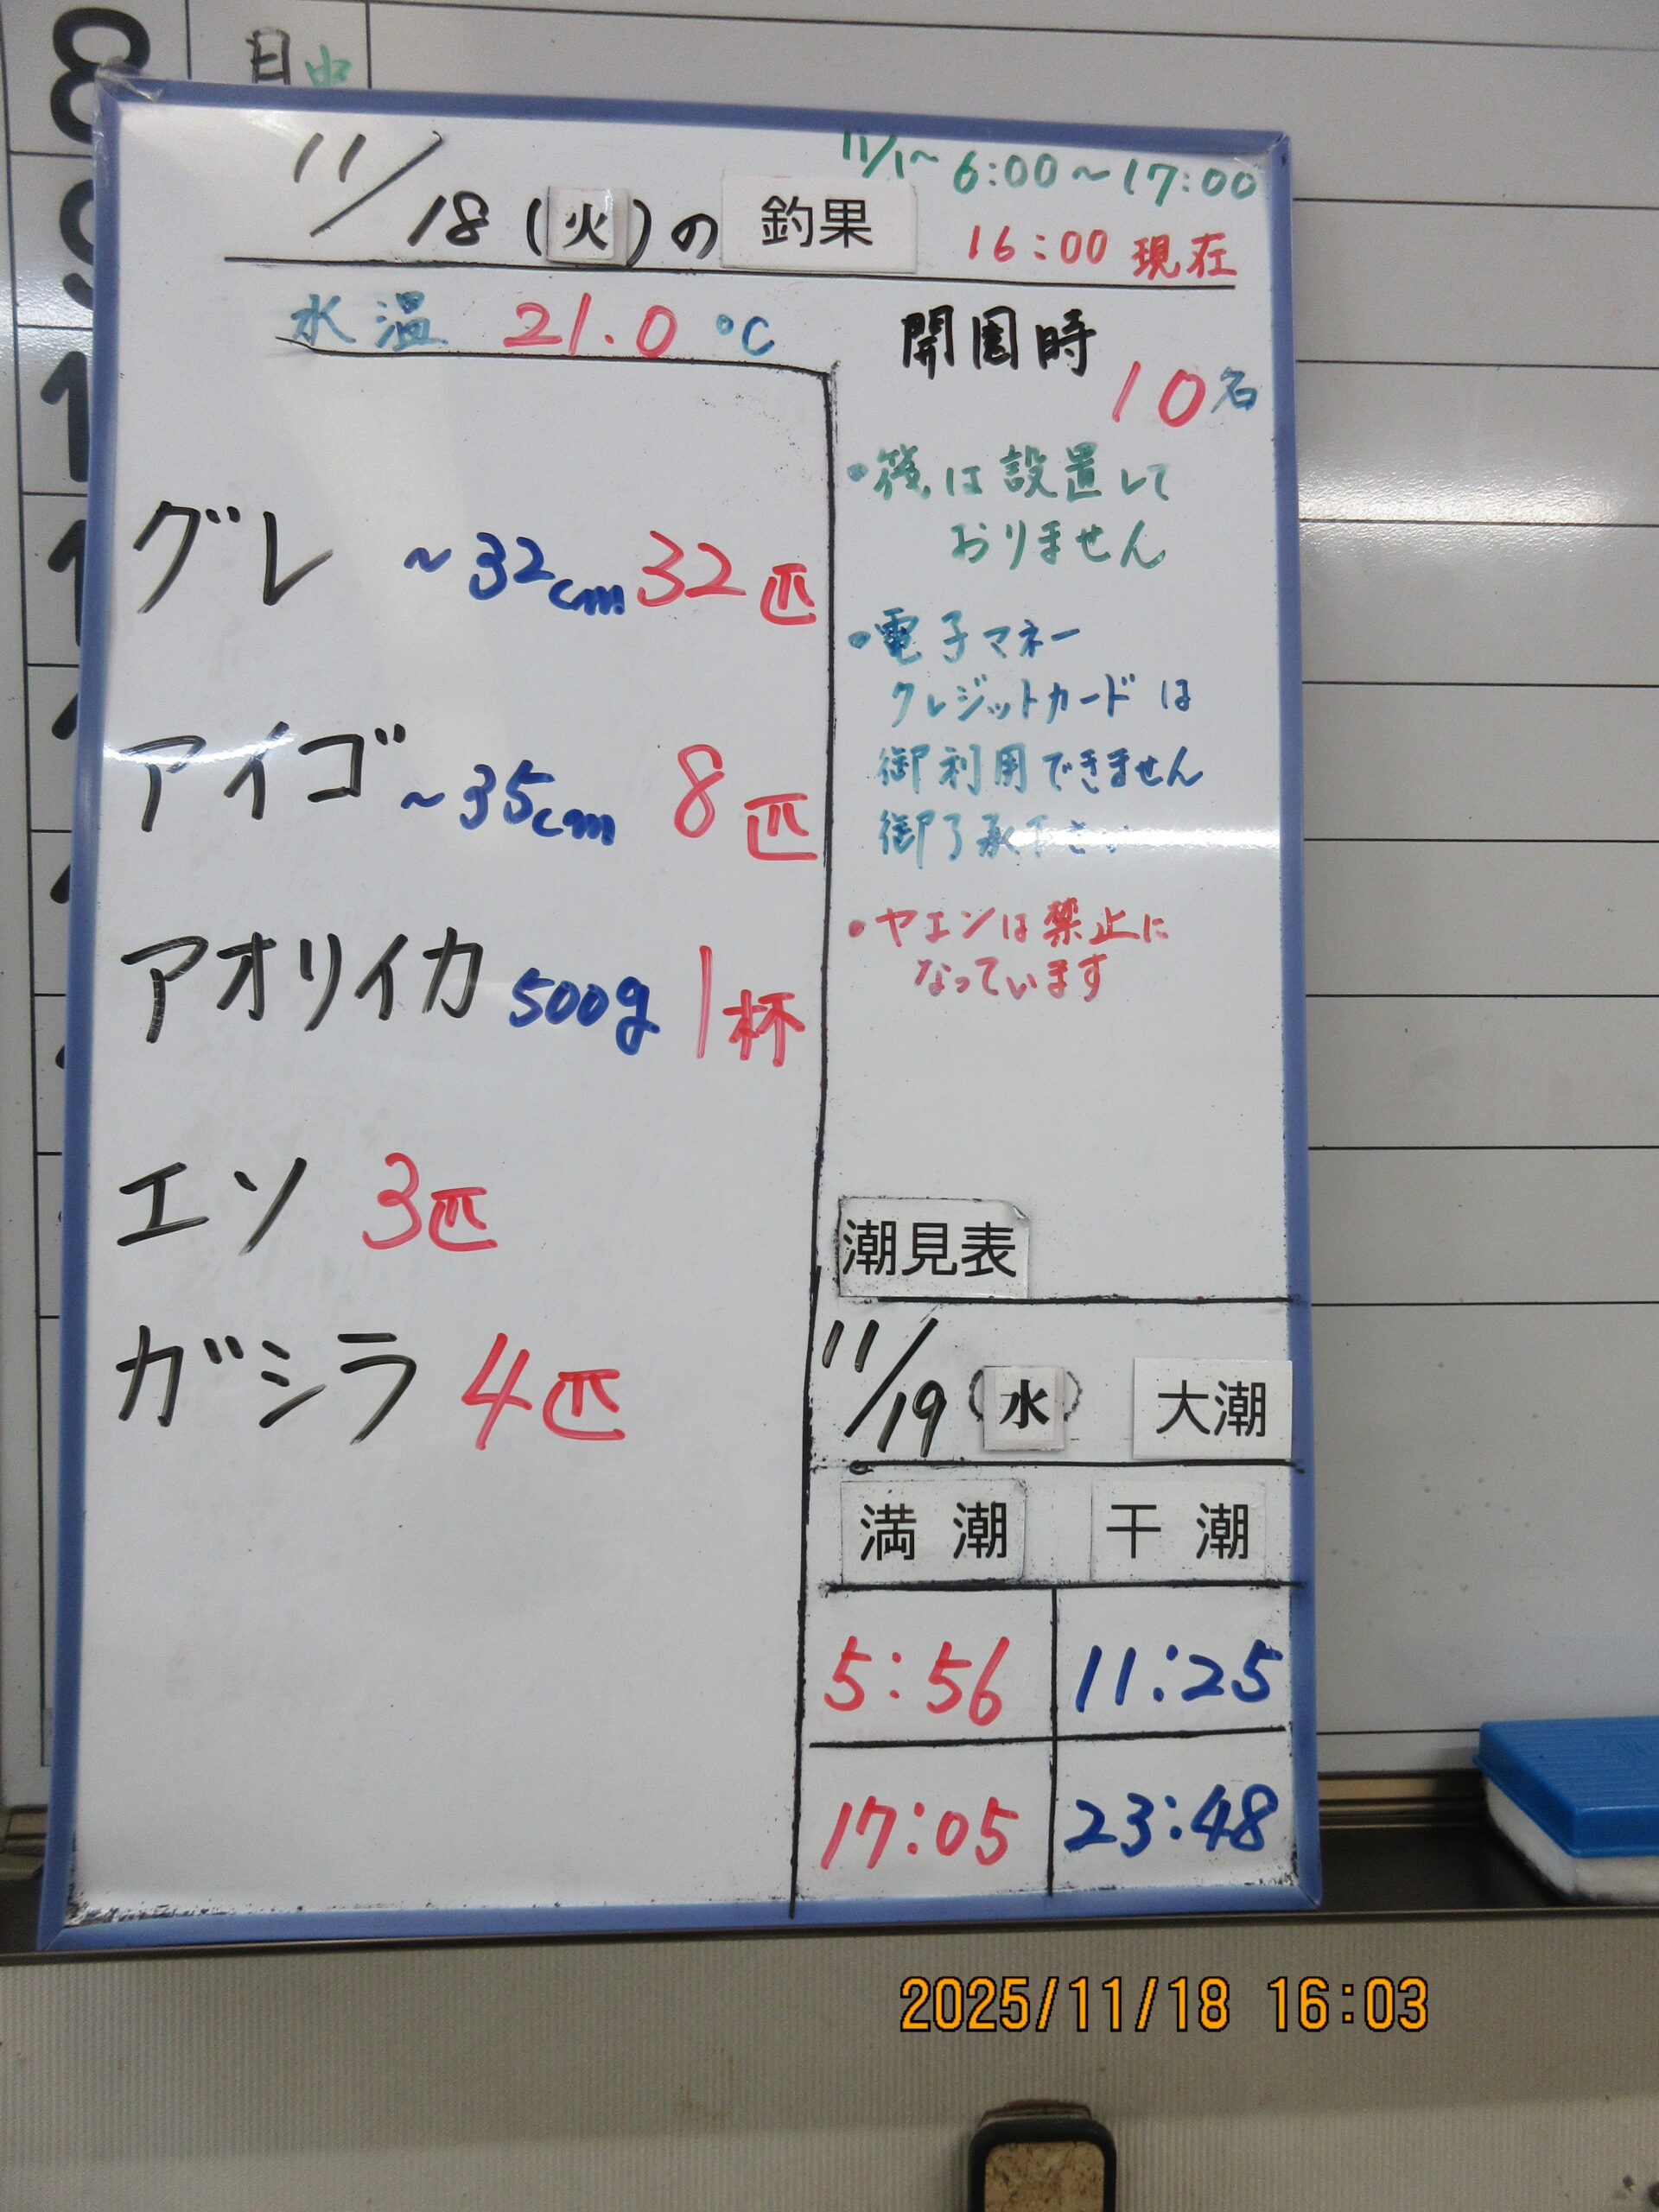 8 月 中
9
11/1~ 6:00~17:00
11/18(火)の 釣果
16:00 現在
水温 21.0 ℃
グレ ~32cm 32匹
アイゴ ~35cm 8匹
アオリイカ 500g 1杯
エソ 3匹
ガシラ 4匹
開園時
10名
・筏は設置して
おりません
・電子マネー
クレジットカードは
御利用できません
御了承下さい
・ヤエンは禁止に
なっています
潮見表
11/19(水) 大潮
満潮 干潮
5:56 11:25
17:05 23:48
2025/11/18 16:03